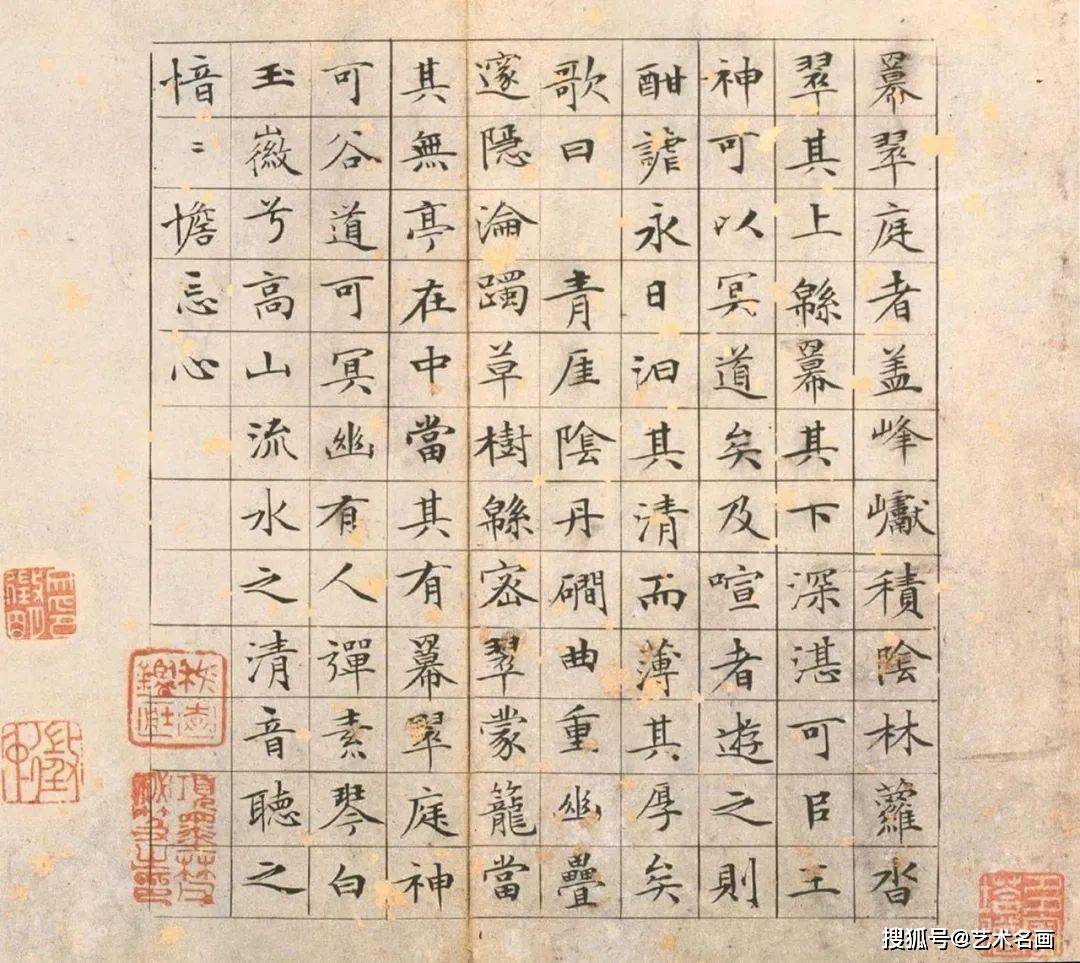 羃翠庭者盖峰巘積陰林蘿沓
翠其上緜羃其下深湛可㠯王
神可以冥道矣及喧者遊之則
酣謔永日汩其清而薄其厚矣
歌曰　青厓陰丹磵曲重幽疊
邃隱淪躅草樹緜宻翠蒙籠當
其無亭在中當其有羃翠庭神
可谷道可冥幽有人彈素琴白
玉徽兮高山流水之清音聽之
愔〻憺忘心
項墨林父秘笈之印
搜狐号@艺术名画